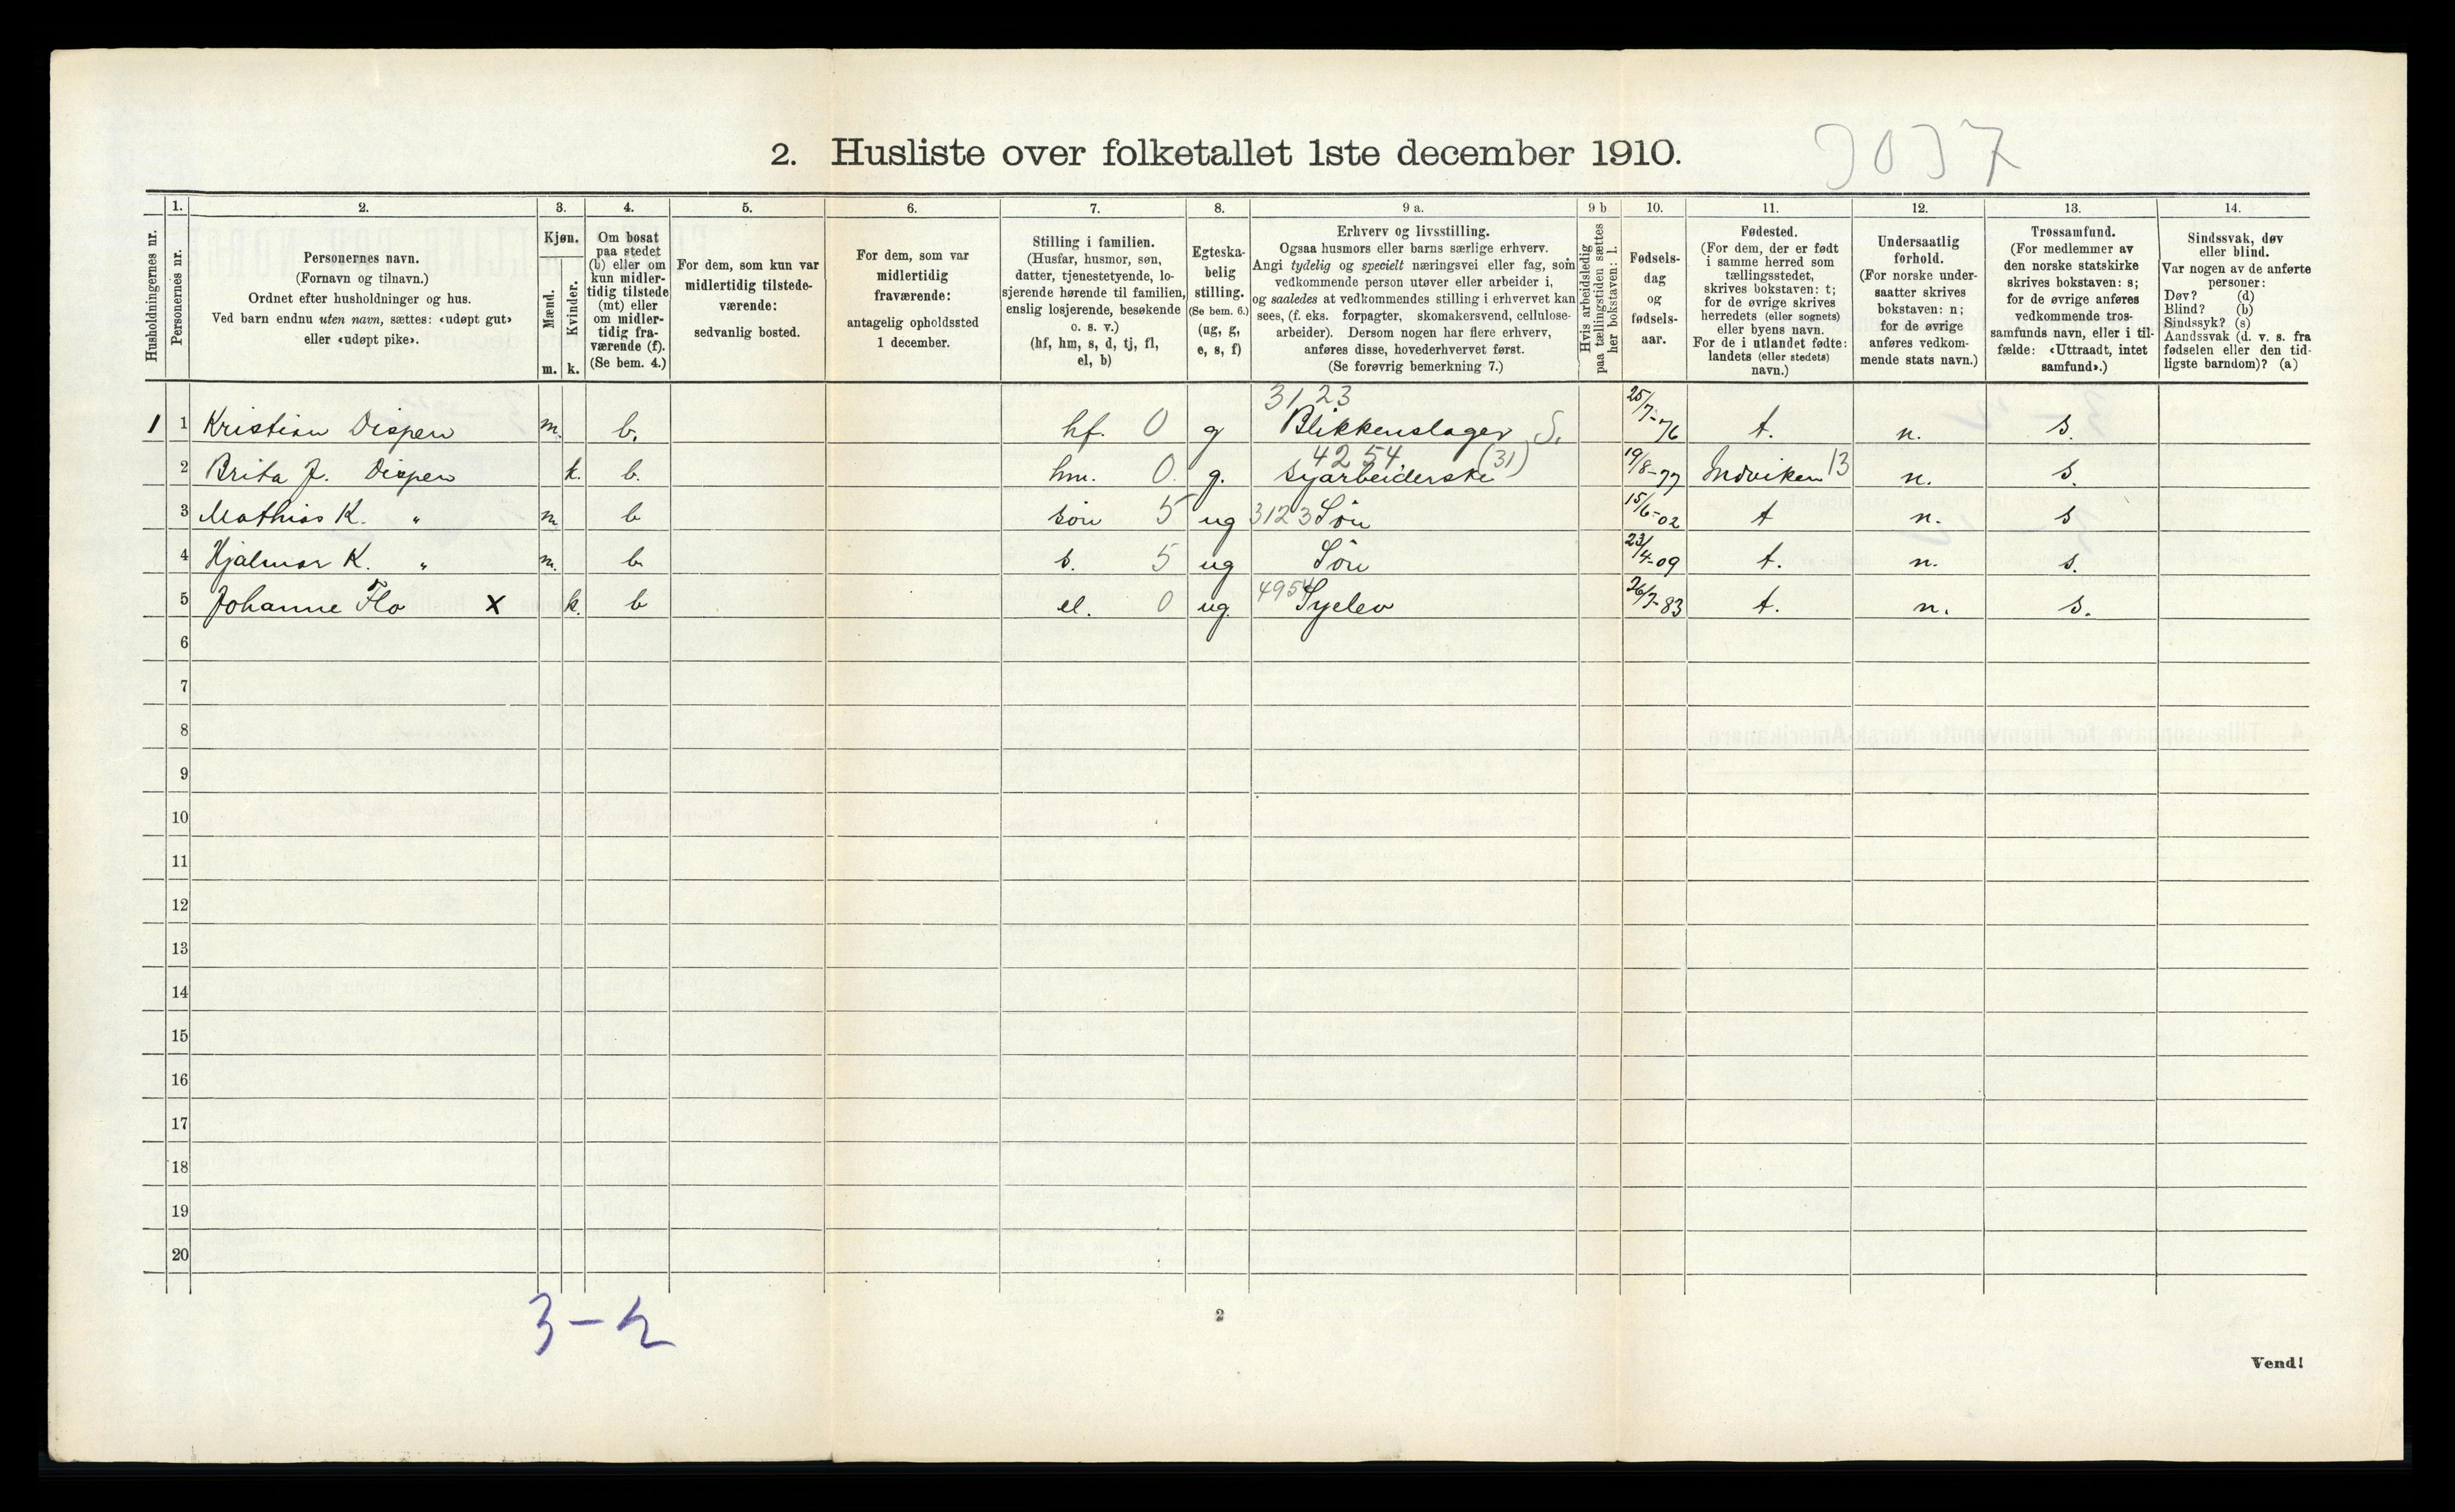 2. Husliste over folketallet 1ste december 1910.
1. 2. 3. 4. 5. 6. 7. 8. 9 a. 9 b 10. 11. 12. 13. 14.
Husholdningernes nr.
Personernes nr.
Personernes navn.
(Fornavn og tilnavn.)
Ordnet efter husholdninger og hus.
Ved barn endnu uten navn, sættes: «udøpt gut»
eller «udøpt pike».
Kjøn.
Mænd.
Kvinder.
m. k.
Om bosat
paa stedet
(b) eller om
kun midler-
tidig tilstede
(mt) eller
om midler-
tidig fra-
værende (f).
(Se bem. 4.)
For dem, som kun var
midlertidig tilstede-
værende:
sedvanlig bosted.
For dem, som var
midlertidig
fraværende:
antagelig opholdssted
1 december.
Stilling i familien.
(Husfar, husmor, søn,
datter, tjenestetyende, lo-
sjerende hørende til familien,
enslig losjerende, besøkende
o. s. v.)
(hf, hm, s, d, tj, fl,
el, b)
Egteska-
belig
stilling.
(Se bem. 6.)
(ug, g,
e, s, f)
Erhverv og livsstilling.
Ogsaa husmors eller barns særlige erhverv.
Angi tydelig og specielt næringsvei eller fag, som
vedkommende person utøver eller arbeider i,
og saaledes at vedkommendes stilling i erhvervet kan
sees, (f. eks. forpagter, skomakersvend, cellulose-
arbeider). Dersom nogen har flere erhverv,
anføres disse, hovederhvervet først.
(Se forøvrig bemerkning 7.)
Hvis arbeidsledig
paa tællingstiden sættes
her bokstaven: l.
Fødsels-
dag
og
fødsels-
aar.
Fødested.
(For dem, der er født
i samme herred som
tællingsstedet,
skrives bokstaven: t;
for de øvrige skrives
herredets (eller sognets)
eller byens navn.
For de i utlandet fødte:
landets (eller stedets)
navn.)
Undersaatlig
forhold.
(For norske under-
saatter skrives
bokstaven: n;
for de øvrige
anføres vedkom-
mende stats navn.)
Trossamfund.
(For medlemmer av
den norske statskirke
skrives bokstaven: s;
for de øvrige anføres
vedkommende tros-
samfunds navn, eller i til-
fælde: «Uttraadt, intet
samfund».)
Sindssvak, døv
eller blind.
Var nogen av de anførte
personer:
Døv? (d)
Blind? (b)
Sindssyk? (s)
Aandssvak (d. v. s. fra
fødselen eller den tid-
ligste barndom)? (a)
3123
1 1 Kristian Dispen m. b. hf. 0 g Blikkenslager S. 25/7-76 t. n. s.
4254 (31)
2 Brita J. Dispen k. b. hm. 0 g. syarbeiderske 19/8-77 Indviken 13 n. s.
3 Mathias K. " m b søn 5 ug 3123 Søn 15/6-02 t n. s
4 Hjalmar K. " m. b. s. 5 ug Søn 23/4-09 t. n. s.
5 Johanne Flo x k. b el. 0 ug. 4954 Syelev 26/7-83 t. n. s.
6
7
8
9
10
11
12
13
14
15
16
17
18
19
20
3-2
2
Vend!